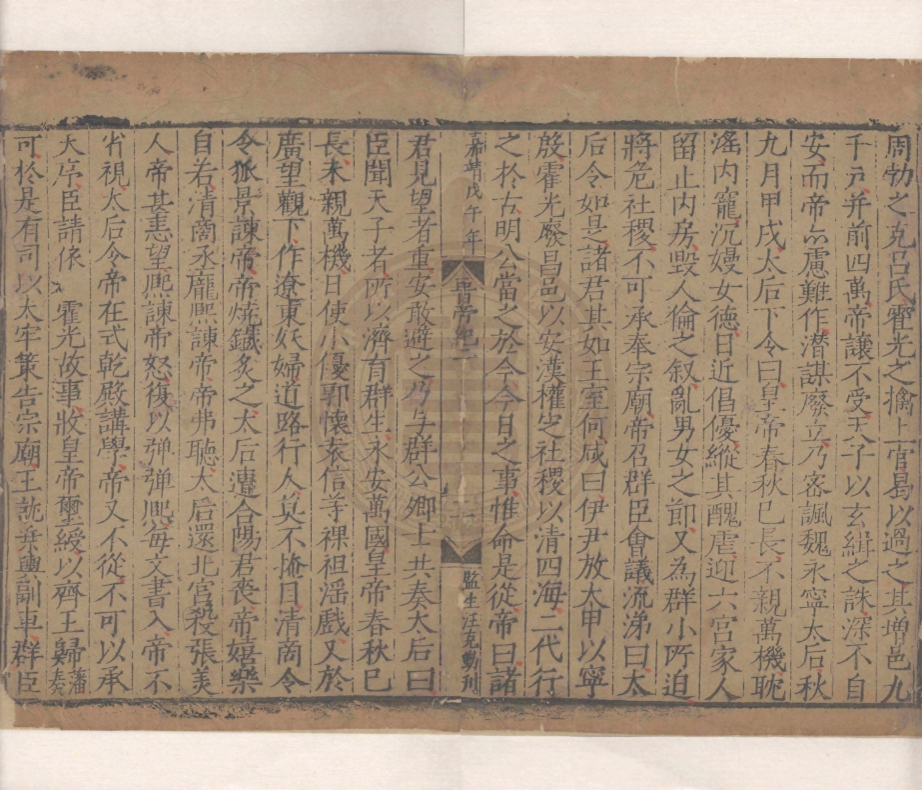 周勃之克呂氏霍光之擒上官曷以過之其增邑九
千戶并前四萬帝讓不受天子以玄緝之誅深不自
安而帝亦慮難作潜謀廢立乃密諷魏永寧太后秋
九月甲戌太后下令曰皇帝春秋已長不親萬機耽
滛内寵沉嫚女德日近倡優縱其醜虐迎六宫家人
留止内房毁人倫之叙亂男女之節又為群小所迫
將危社稷不可承奉宗廟帝召群臣會議流涕曰太
后令如是諸君其如王室何咸曰伊尹放太甲以寧
殷霍光廢昌邑以安漢權㝎社稷以清四海二代行
之於古明公當之於今今日之事惟命是從帝曰諸
嘉靖戊午年
晋帝紀二
監生汪克勤刊
君見望者重安敢避之乃与群公卿士共奏太后曰
臣聞天子者所以濟育群生永安萬國皇帝春秋已
長未親萬機日使小優郭懷袁信等裸袒滛戲又於
廣望觀下作遼東妖婦道路行人莫不掩目清商令
令狐景諫帝帝燒鐡炙之太后遭合陽君喪帝嬉樂
自若清商丞龐熙諫帝帝弗聽太后還北宫殺張美
人帝甚恚望熙諫帝怒復以弹弹熙每文書入帝不
省視太后令帝在式乾殿講學帝又不從不可以承
天序臣請依霍光故事收皇帝璽綬以齊王歸藩奏
可於是有司以太牢䇿告宗廟王就乗輿副車群臣